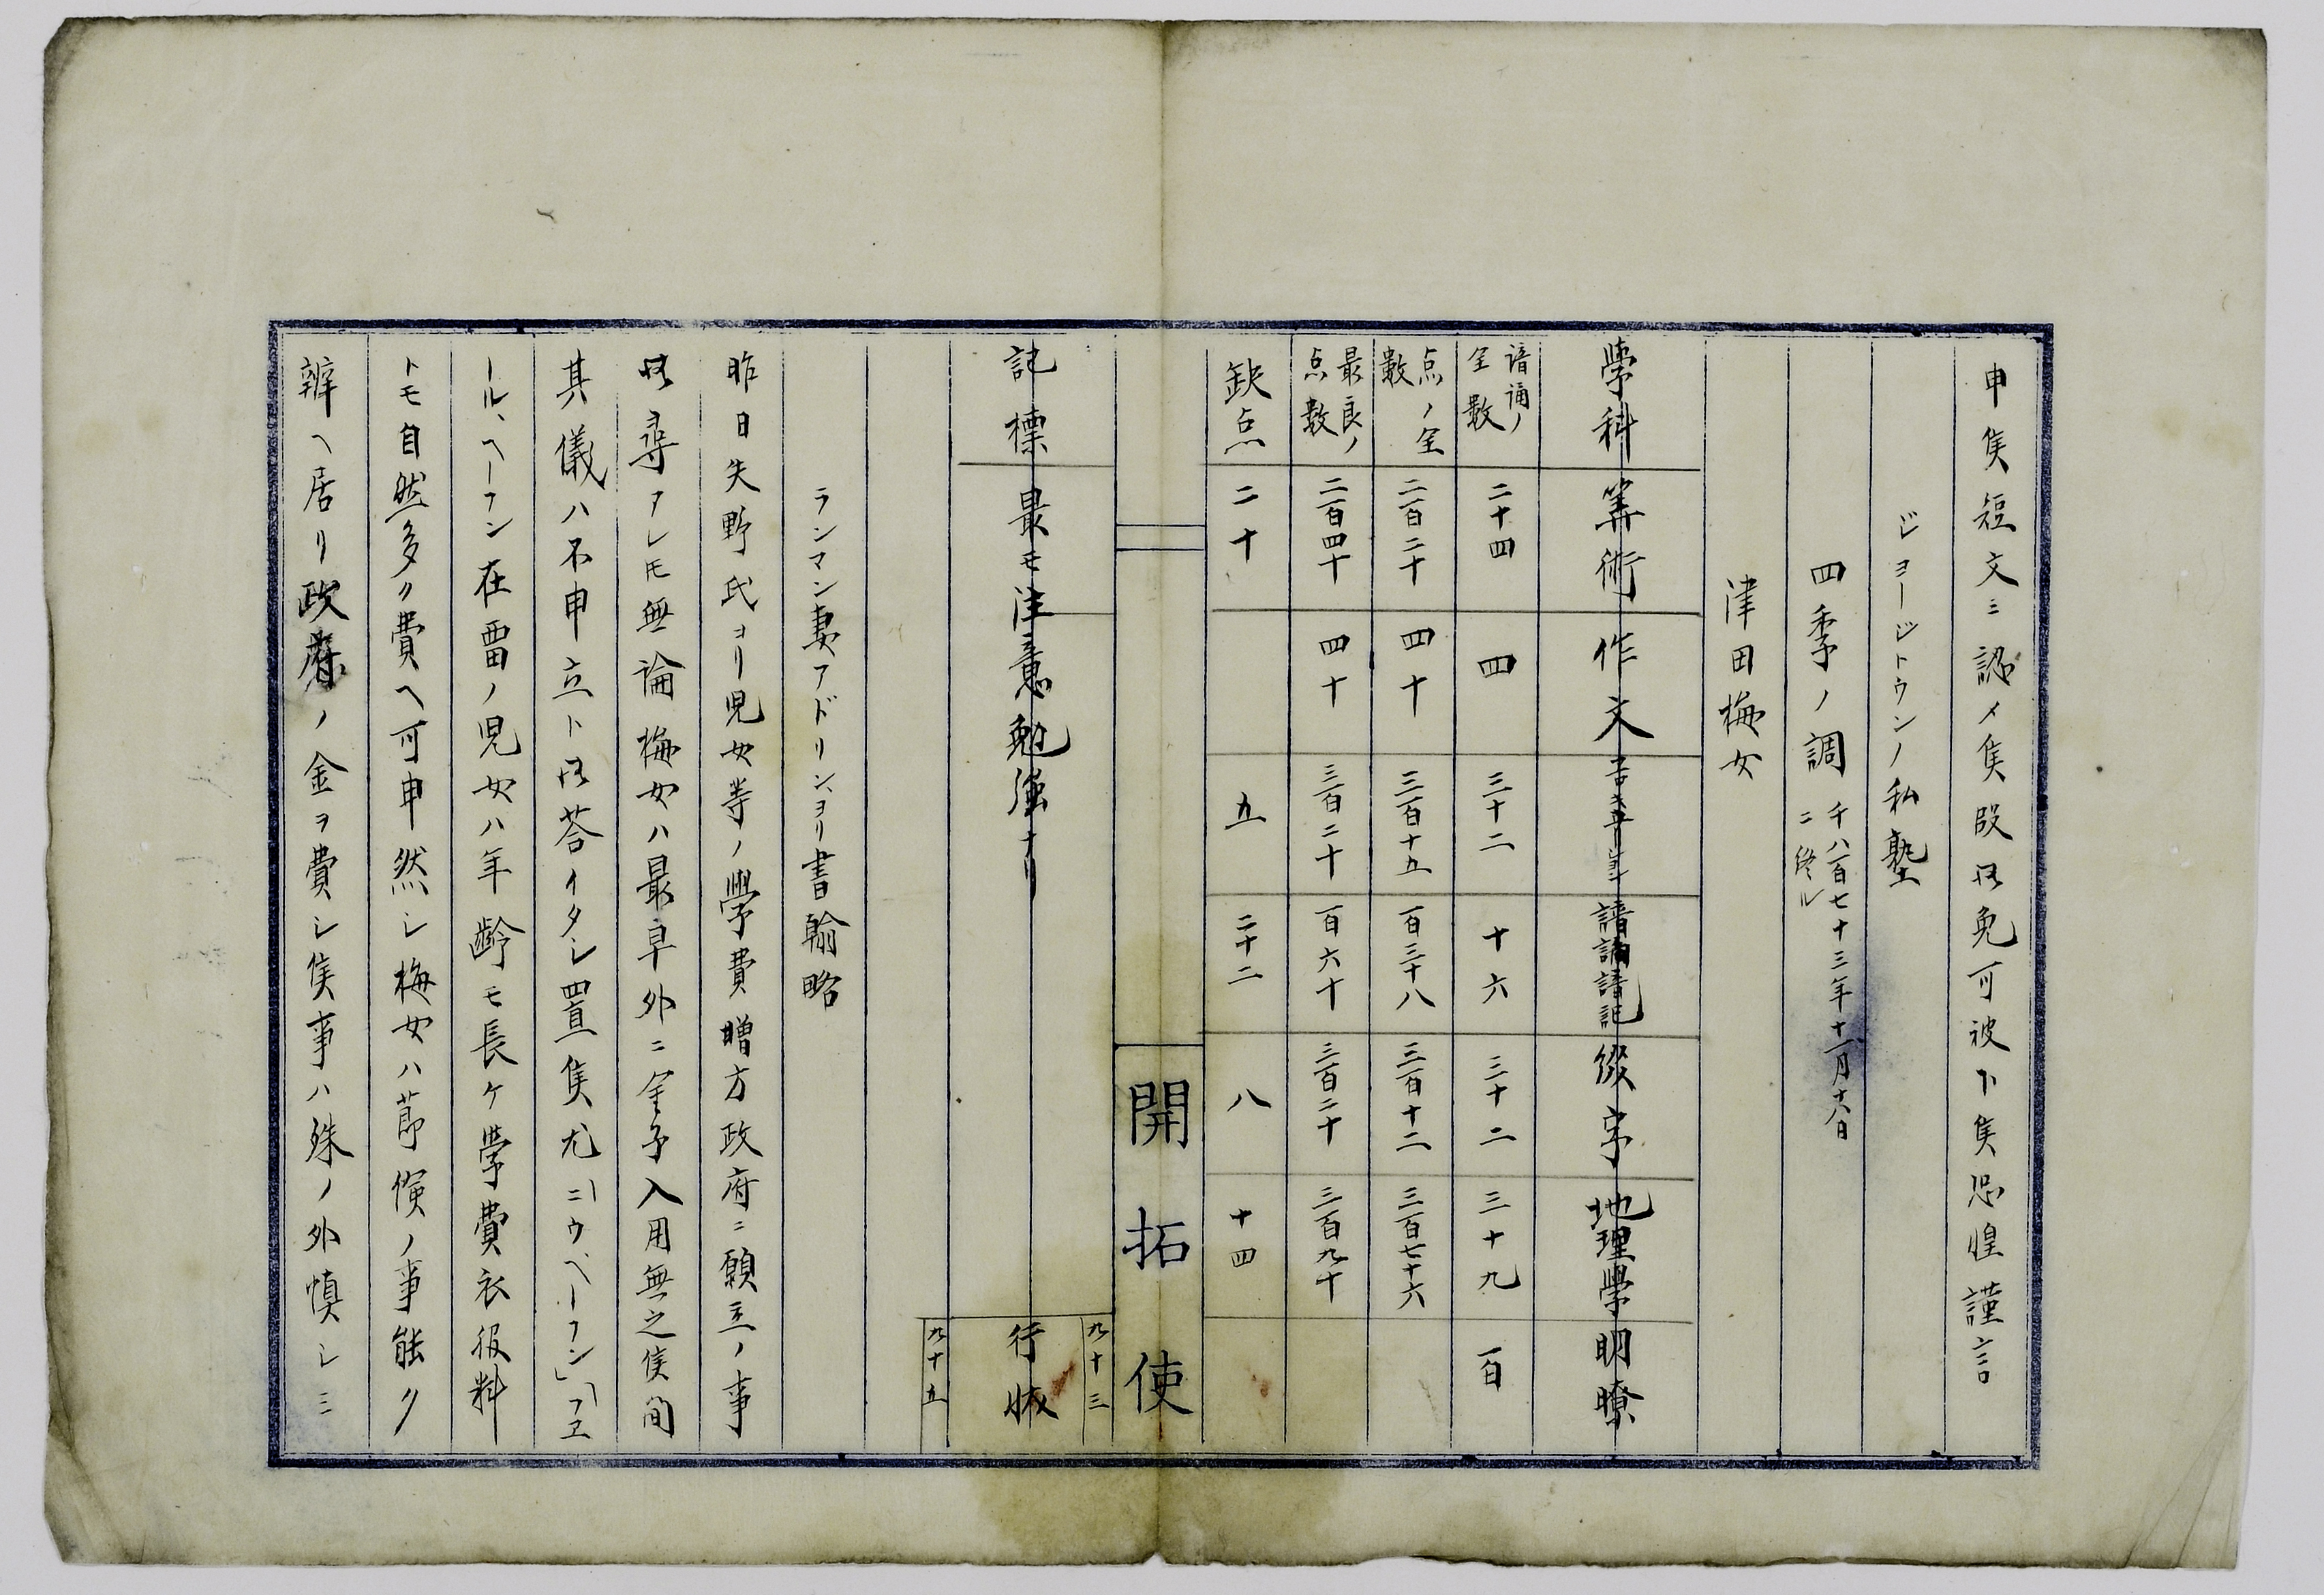 申候短文ニ認メ候段御免可被下候恐惶謹言
ジョージトウンノ私塾
四季ノ調 千八百七十三年十一月十八日ニ終ル
津田梅女
學科 筭術 作文 諳誦諳記 綴字 地理學 明瞭
諳誦ノ全数 二十四 四 三十二 十六 三十二 三十九 百
点ノ全數 二百二十 四十 三百十五 百三十八 三百十二 三百七十六
最良ノ点数 二百四十 四十 三百二十 百六十 三百二十 三百九十
缺点 二十 五 二十二 八 十四
開拓使
九十三
記標 最モ注意勉強ナリ 行状
九十五
ランマン妻アドリン、ヨリ書翰略
昨日矢野氏ヨリ児女等ノ學費贈方政府ニ願立ノ事
御尋アレ𪜈無論梅女ハ最早外ニ金子入用無之候間
其儀ハ不申立ト御荅イタシ置候尤「ニウヘーフン」「フエ
ール、ヘーフン在畱ノ児女ハ年齢モ長ケ學費衣服料
トモ自然多ク費ヘ可申然シ梅女ハ莭倹ノ事能ク
辨ヘ居リ政府ノ金ヲ費シ候事ハ殊ノ外慎シミ